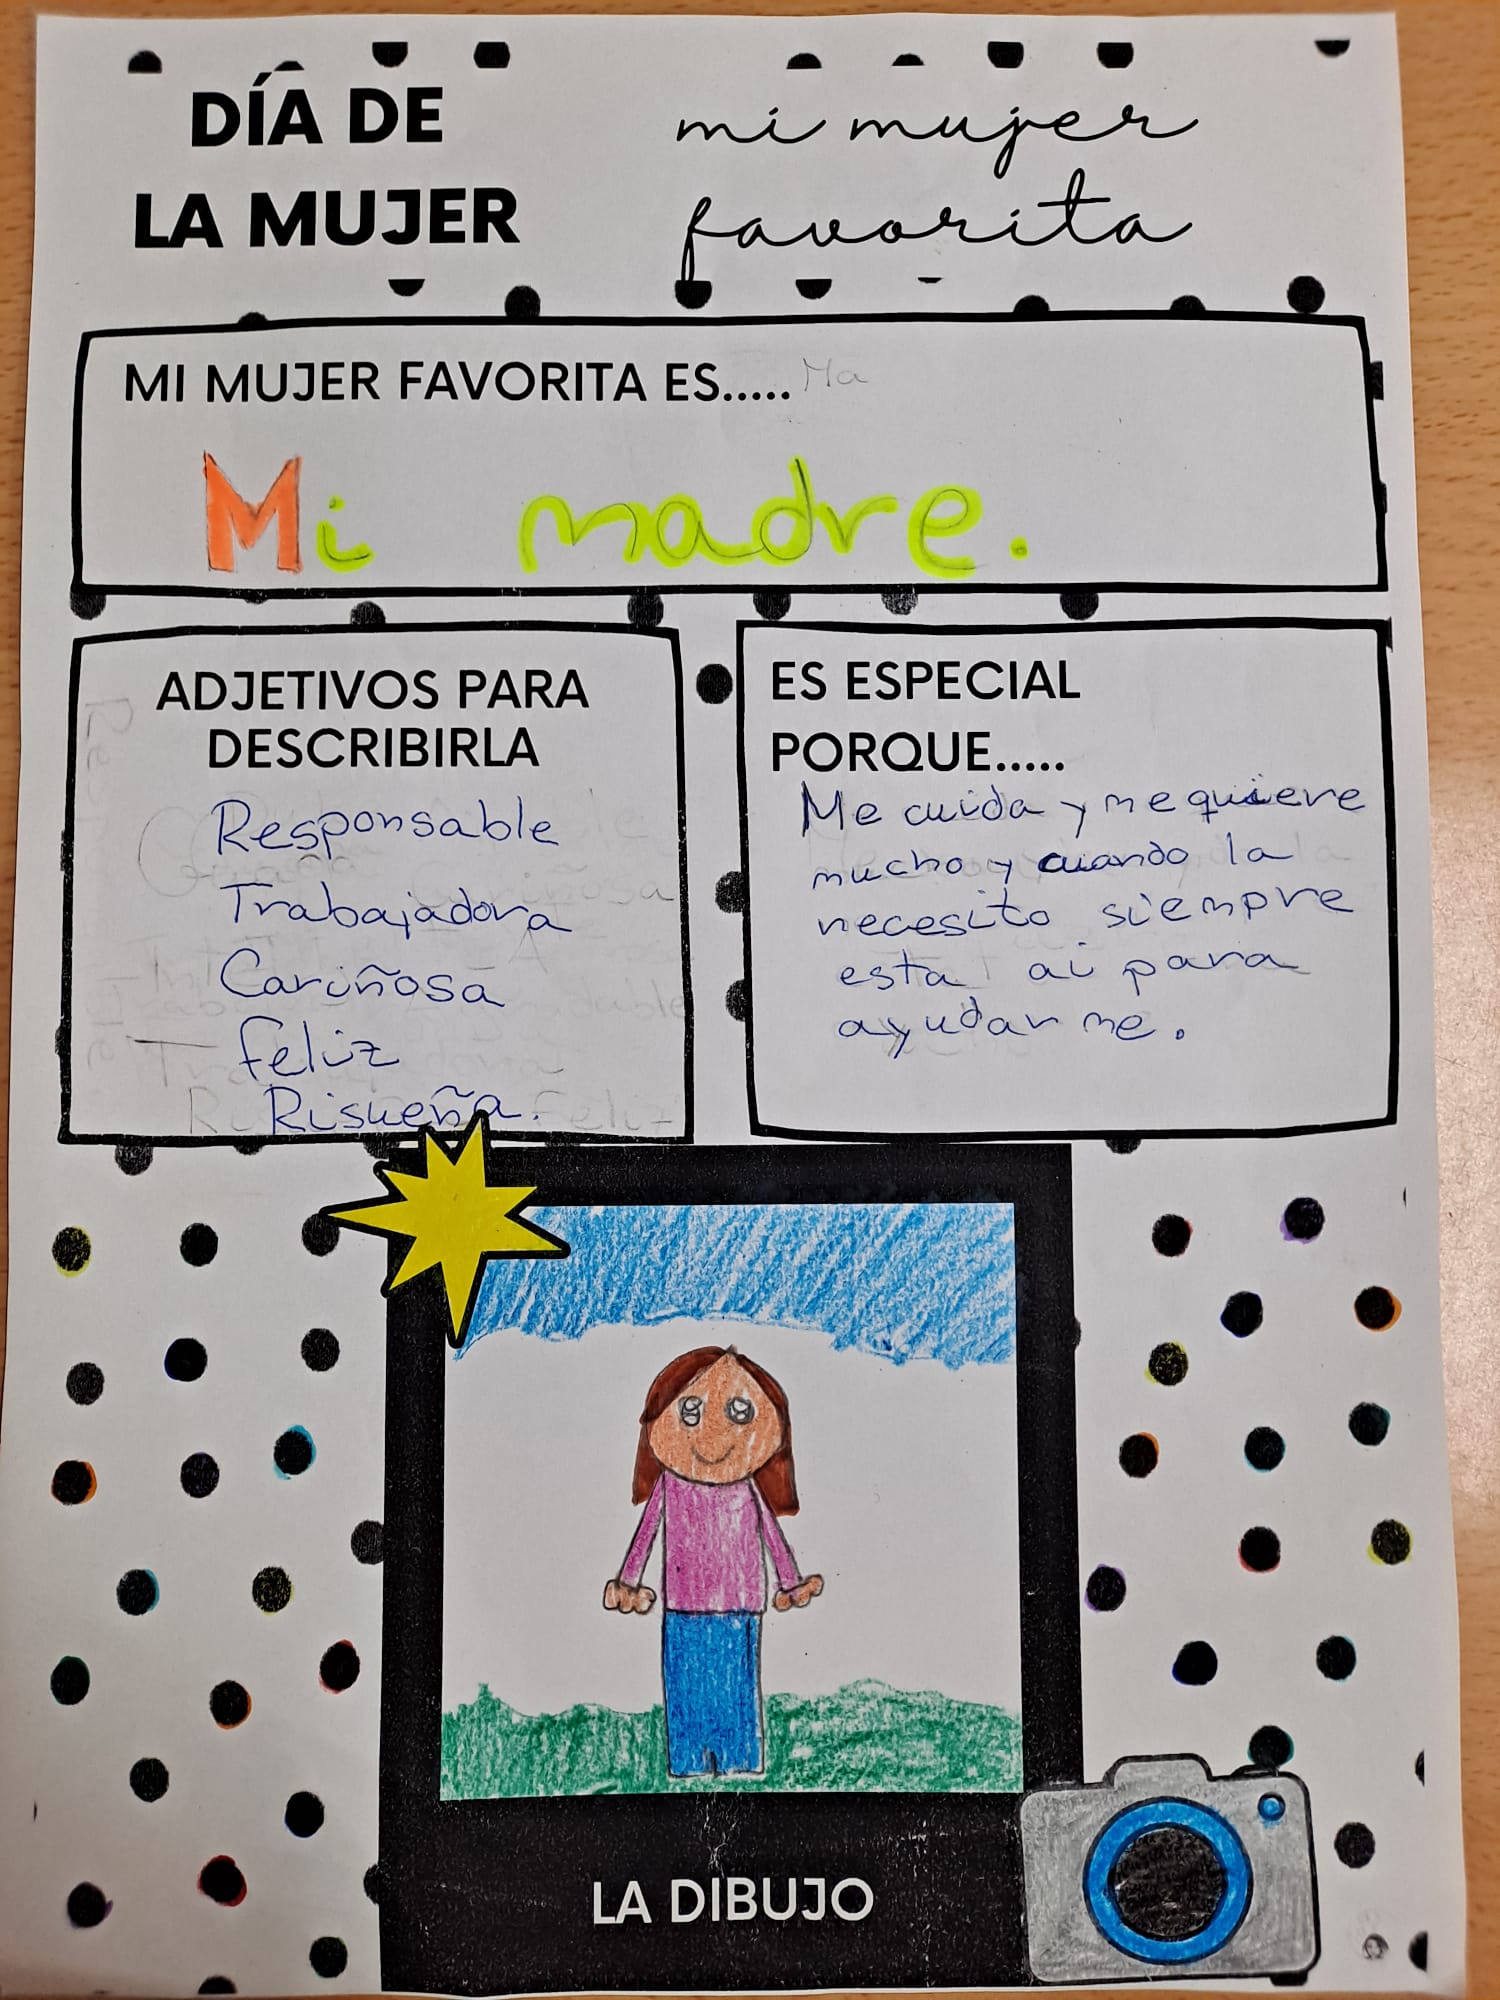 DÍA DE
LA MUJER
mi mujer
favorita
MI MUJER FAVORITA ES..... Ma
Mi madre.
ADJETIVOS PARA
DESCRIBIRLA
Responsable
Trabajadora
Cariñosa
feliz
Risueña.
ES ESPECIAL
PORQUE.....
Me cuida y me quiere
mucho y cuando la
necesito siempre
esta ai para
ayudarme.
LA DIBUJO